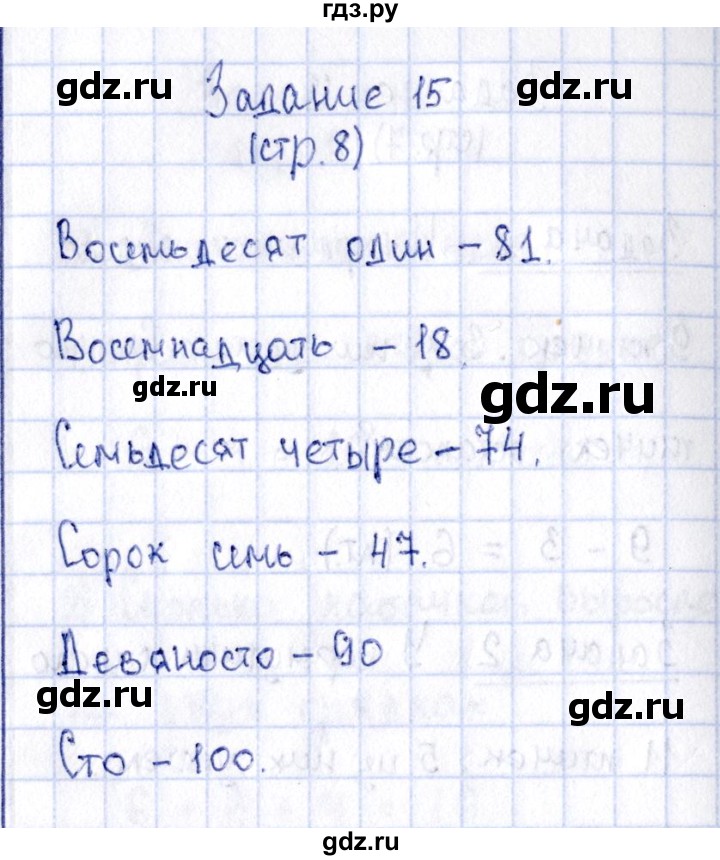 гдз.ру
gdz.ru gdz.ru
Задание 15
(стр. 8)
Восемьдесят один – 81.
Восемнадцать – 18.
gdz.ru gdz.ru
Семьдесят четыре – 74.
Сорок семь – 47.
9 - 3 = 6 (т.)
Девяносто – 90
gdz.ru gdz.ru
Сто – 100.
gdz.ru